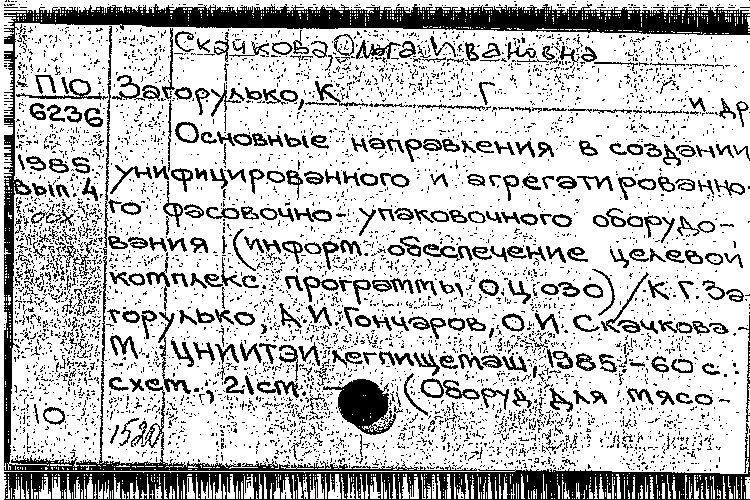 Скачкова, Ольга Ивановна
П10 Загорулько, К Г и др
6236
Основные направления в создании
1985 унифицированного и агрегатированно-
Вып. 4
го фасовочно-упаковочного оборудо-
вания (информ. обеспечение целевой
комплекс. программы О.Ц.030) / К.Г. За-
горулько, А.И. Гончаров, О.И. Скачкова.-
М. ЦНИИТЭИлегпищемаш, 1985.-60 с.:
схем., 21 см. — (Оборуд для мясо-
10
1520